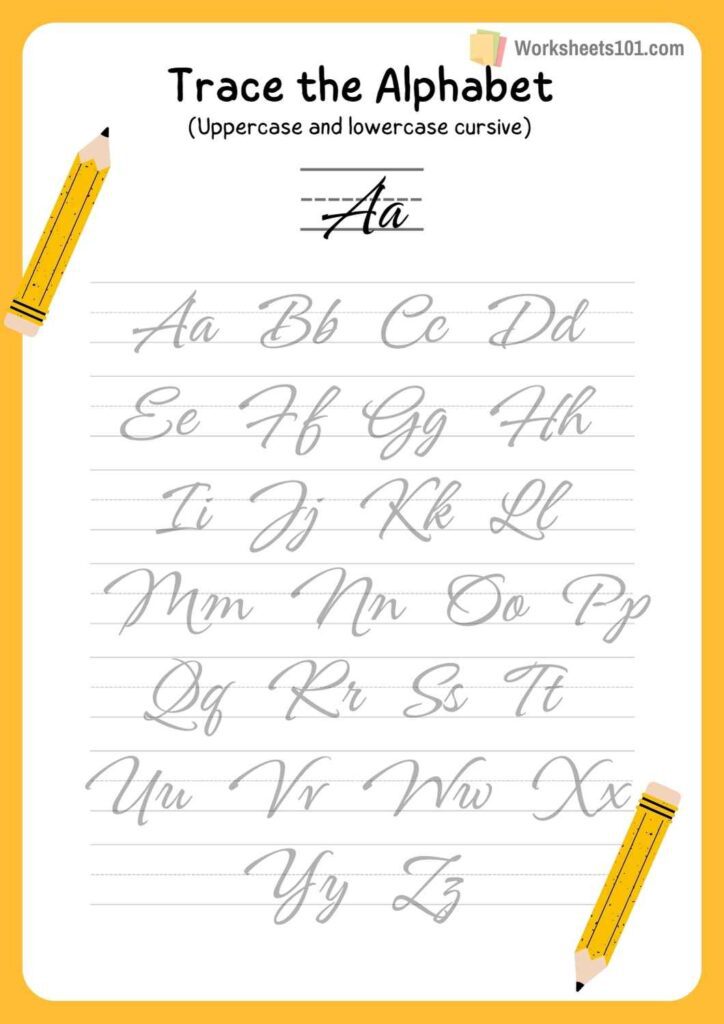 Worksheets101.com
Trace the Alphabet
(Uppercase and lowercase cursive)
Aa
Aa Bb Cc Dd
Ee Ff Gg Hh
Ii Jj Kk Ll
Mm Nn Oo Pp
Qq Rr Ss Tt
Uu Vv Ww Xx
Yy Zz